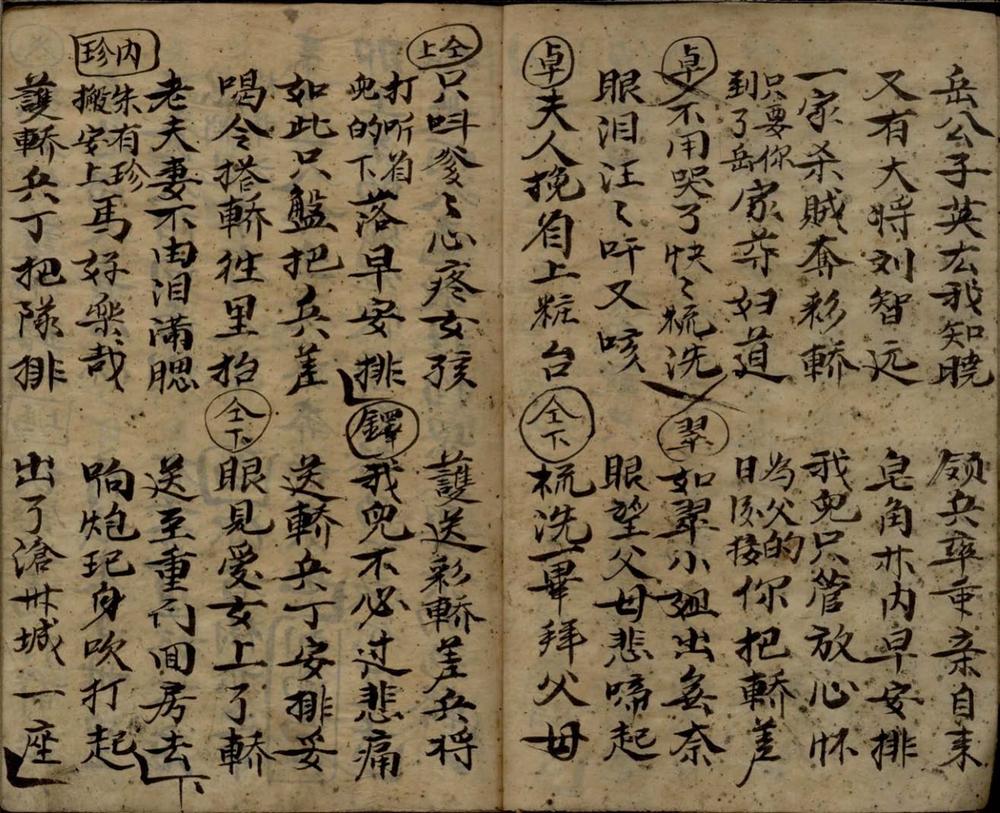 岳公子英玄我知曉 領兵率重亲自来
又有大将刘智远 皂角林内早安排
一家杀贼奪彩轎 我兒只管放心怀
只要你到了岳家莊妇道 為父的日後接你把轎差
卓 不用哭了快〻梳洗 翠 如翠小姐出無奈
眼泪汪〻吁又咳 眼望父母悲啼起
卓 夫人挽着上粧台 仝下 梳洗一畢拜父母
仝上 只叫爹〻心疼女孩 護送彩轎差兵将
打听着兒的下落早安排 鐸 我兒不必过悲痛
如此只盤把兵差 送轎兵丁安排妥
喝令搭轎徃里抬 仝下 眼見爱女上了轎
老夫妻不由泪满腮 送至重门回房去 下
内珍 朱有珍搬安上馬好樂哉 响炮起身吹打起
護轎兵丁把隊排 出了滄州城一座